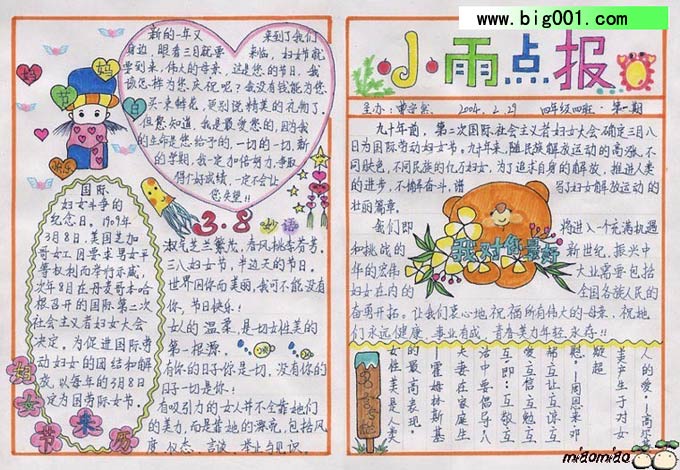 www.big001.com
妈
妈
节
日
快乐
新的一年又 来到了我们
身边,眼看三日就要 来临,妇女节就
要到来,伟大的母亲,这是您的节日,我
该怎样为您庆祝呢?我没有钱能为您
买一束鲜花,更别说精美的礼物了,
但您知道,我是最爱您的,因为我
的生命是您给予的,一切的一切,新
的学期,我一定加倍努力,争取
得个好成绩,一定不会让
您失望!!
国际
妇女斗争的
纪念日。1909年
3月8日,美国芝加
哥女工因要求男女平
等权利而举行示威,
次年8月在丹麦哥本哈
根召开的国际第二次
社会主义者妇女大会
决定,为促进国际劳
动妇女的团结和解
放,以每年的3月8日
定为国际妇女节。
妇女节来历
3.8 妙语
淑气芝兰繁茂,春风桃李芬芳。
三八妇女节,半边天的节日。
世界因你而美丽,我可不能没有
你,节日快乐!
女人的温柔,是一切女性美的
第一根源。
有你的日子你是一切,没有你的
日子一切是你!
有吸引力的女人并不全靠她们
的美力,而是靠她的漂亮,包括风
度、仪态、言谈、举止与见识。
小雨点报
主办: 2004.2.29 四年级四班·第一期
九十年前,第二次国际社会主义者妇女大会确定三月八
日为国际劳动妇女节,九十年来,随民族解放运动的高涨,不
同肤色,不同民族的亿万妇女,为了追求自身的解放,推进人类
的进步,不懈奋斗,谱 写了妇女解放运动的
壮丽篇章。
我们即 将进入一个充满机遇
和挑战的 新世纪,振兴中
华的宏伟 大业需要包括
妇女在内的 全国各族人民的
奋勇开拓。让我们衷心地祝福所有伟大的母亲,祝她
们永远健康、事业有成、青春美力年轻永存!!
我对您最好
人的爱。——高尔基
美产生于对女
疑超
慰。——周恩来邓
帮互勉互
爱互信互谅互
互即:互敬互
活中要倡导八
夫妻在家庭生
——霍姆林斯基
的最高表现。
女性美是人类
miaomiao